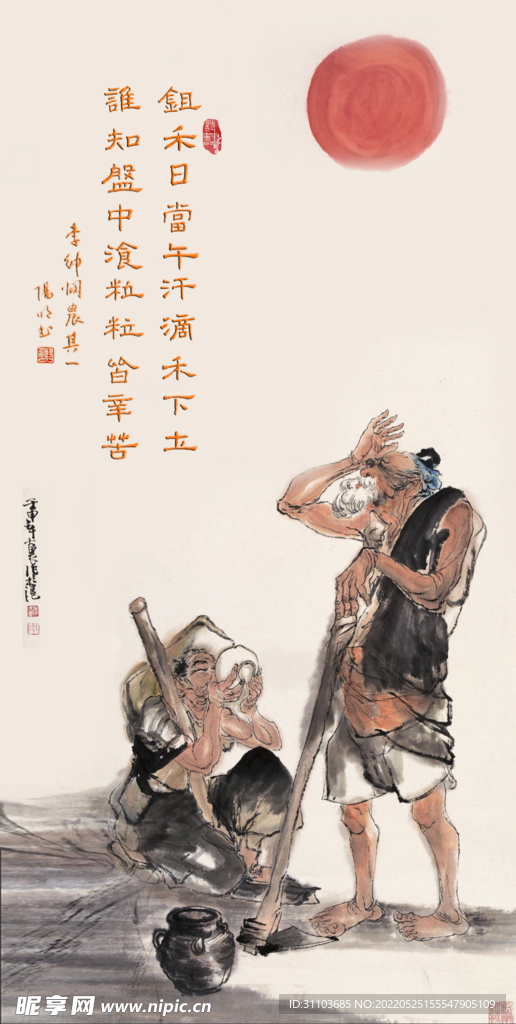 鉏禾日當午汗滴禾下土
誰知盤中飧粒粒皆辛苦
李紳憫農其一
陽明書
昵享网 www.nipic.cn
ID:31103685 NO:20220525155547905109